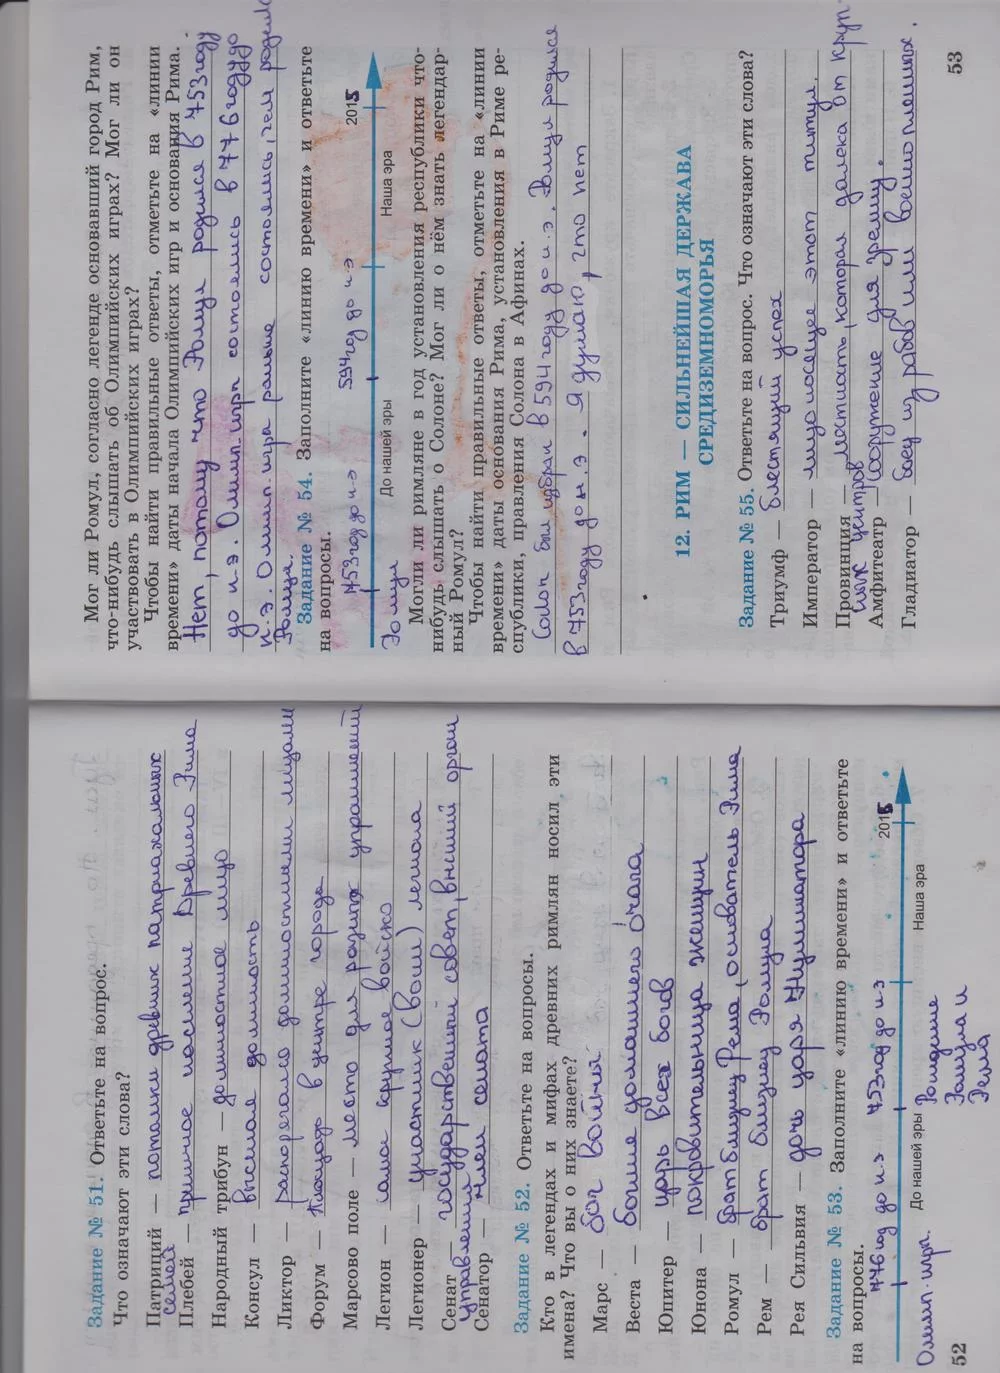 Задание № 51. Ответьте на вопрос.
Что означают эти слова?
Патриций — потомки древних патриархальных
семей
Плебей — пришлое население Древнего Рима
Народный трибун — должностное лицо
Консул — высшая должность
Ликтор — распоряжался должностными лицами
Форум — площадь в центре города
Марсово поле — место для упражнений
Легион — самое крупное войско
Легионер — участник (воин) легиона
Сенат — государственный совет, высший орган
управления
Сенатор — член сената
Задание № 52. Ответьте на вопросы.
Кто в легендах и мифах древних римлян носил эти
имена? Что вы о них знаете?
Марс — бог войны
Веста — богиня домашнего очага
Юпитер — царь всех богов
Юнона — покровительница женщин
Ромул — брат близнец Рема, основатель Рима
Рем — брат близнец Ромула
Рея Сильвия — дочь царя Нумитора
Задание № 53. Заполните «линию времени» и ответьте
на вопросы.
776 год до н э 753 год до н э 2015
До нашей эры Наша эра
Олимп. игры. Рождение
Ромула и
Рема
52
Мог ли Ромул, согласно легенде основавший город Рим,
что-нибудь слышать об Олимпийских играх? Мог ли он
участвовать в Олимпийских играх?
Чтобы найти правильные ответы, отметьте на «линии
времени» даты начала Олимпийских игр и основания Рима.
Нет, потому что Ромул родился в 753 году
до н.э. Олимп. игр состоялись в 776 году до
н.э. Олимп. игра раньше состоялись, чем родился
Ромул.
Задание № 54. Заполните «линию времени» и ответьте
на вопросы.
753 год до н э 594 год до н э 2015
До нашей эры Наша эра
Ромул
Могли ли римляне в год установления республики что-
нибудь слышать о Солоне? Мог ли о нём знать легендар-
ный Ромул?
Чтобы найти правильные ответы, отметьте на «линии
времени» даты основания Рима, установления в Риме ре-
спублики, правления Солона в Афинах.
Солон был избран в 594 году до н.э. Ромул родился
в 753 году до н.э. Я думаю, что нет
12. РИМ — СИЛЬНЕЙШАЯ ДЕРЖАВА
СРЕДИЗЕМНОМОРЬЯ
Задание № 55. Ответьте на вопрос. Что означают эти слова?
Триумф — блестящий успех
Император — лицо носящее этот титул.
Провинция — местность, которая далека от круп-
ных центров
Амфитеатр — Сооружение для зрелищ.
Гладиатор — боец из рабов или военнопленных.
53